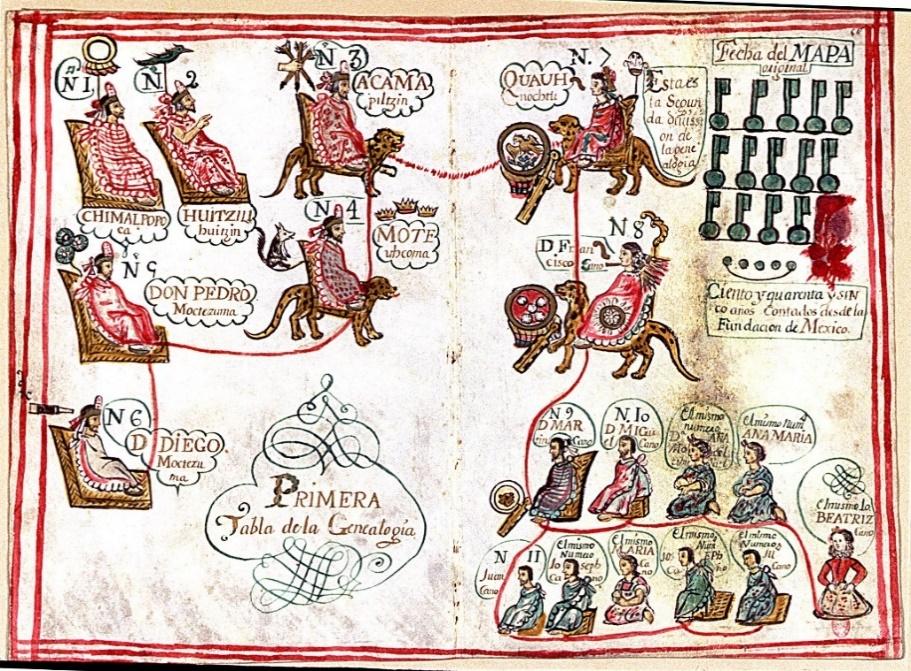 Nº 1
CHIMALPOPO
ca
N. 2
HUITZILI
huitzin
N 3
ACAMA
piltzin
N 4
MOTE
uhcoma
N 5
DON PEDRO
Moctezuma
N 6
D DIEGO
Moctezu
ma
PRIMERA
Tabla de la Genealogia
N. 7
QUAUH
nochtli
Esta es
la Segun
da
on de
la gene
alogia
N 8
D. Fran
cisco Cano
Fecha del MAPA
original
Ciento y quarenta y SIN
co anos Contados desde la
Fundacion de Mexico.
N 9
D MAR
tin Cano
N 10
D MIGu
el Cano
El mismo
numero
D ANA
El mismo Num
ANA MARIA
el mismo 10
BEATRIZ
Cano
N 11
Juan
Cano
El mismo
Numero
Jo seph
Ca no
El mismo
MARIA
Ca no
El mismo
Num
Jos eph
Ca no
El mismo
Numero